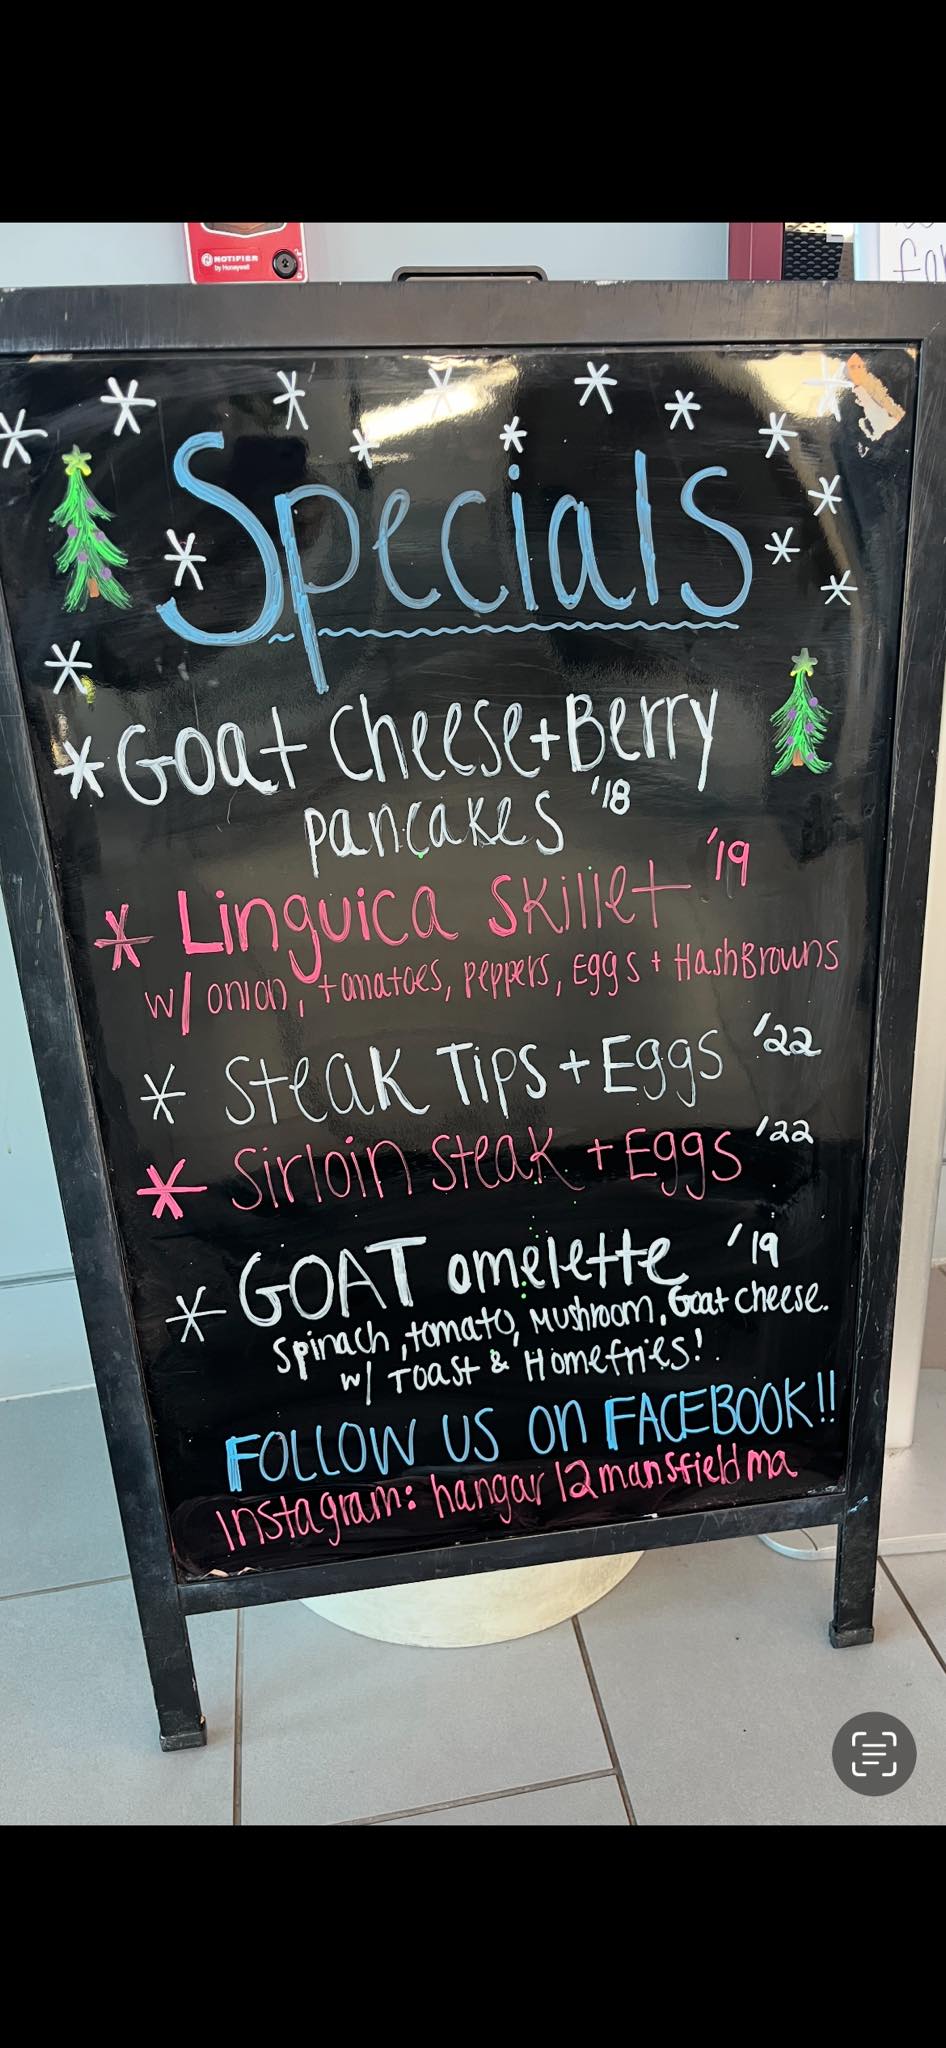 NOTIFIER
by Honeywell
Specials
* Goat Cheese + Berry
pancakes '18
* Linguica Skillet '19
w/ onion, tomatoes, peppers, Eggs + HashBrowns
* Steak Tips + Eggs '22
* Sirloin Steak + Eggs '22
* GOAT omelette '19
Spinach, tomato, Mushroom, Goat cheese.
w/ Toast & Homefries!
FOLLOW US ON FACEBOOK!!
Instagram: hangar12mansfieldma